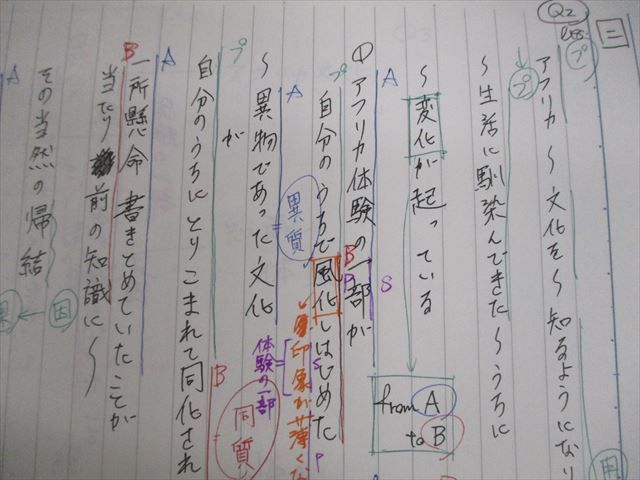 二
Q2
プ
アフリカ〜文化を〜知るようになり
プ
〜生活に馴染んできた〜うちに
因
〜変化が起っている
from A to B
A
① アフリカ体験の一部が
S
プ
自分のうちで風化しはじめた
B
P
印象が薄くな
S
P
体験の一部
A
〜異物であった文化
異質
が
プ
自分のうちにとりこまれて同化され
B
同質
A
一所懸命書きとめていたことが
B
当たり前の知識に〜
A
その当然の帰結
因
果